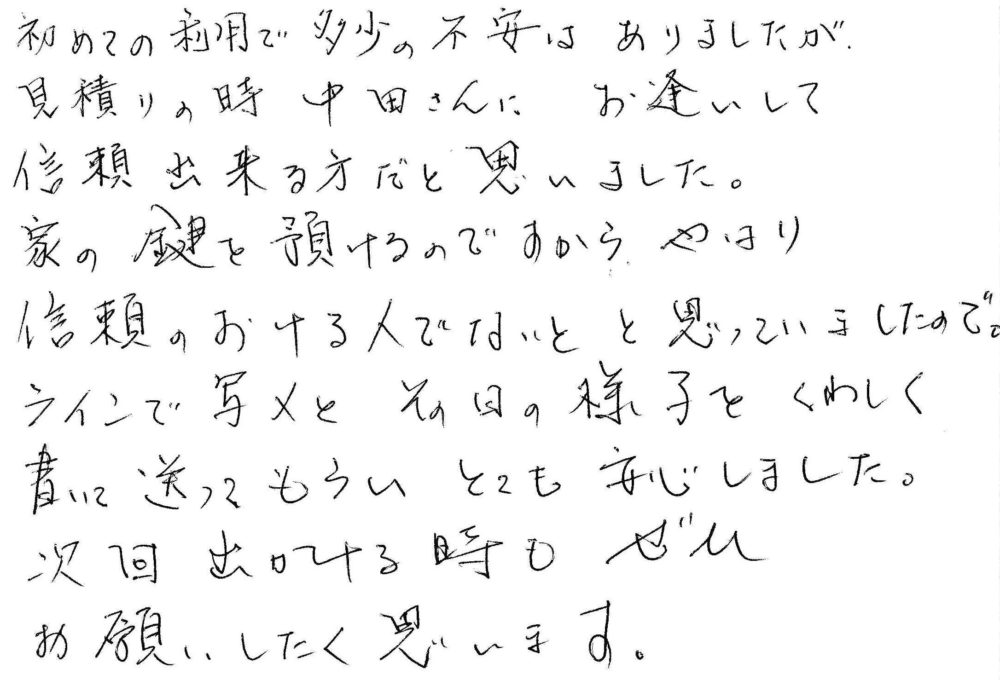 初めての利用で多少の不安は ありましたが、
見積りの時 中田さんに お逢いして
信頼出来る方だと思いました。
家の鍵を預けるのですから、やはり
信頼のおける人でないと と思っていましたので。
ラインで写メと その日の様子を くわしく
書いて送ってもらい とても安心しました。
次回出かける時も ぜひ
お願いしたく思います。